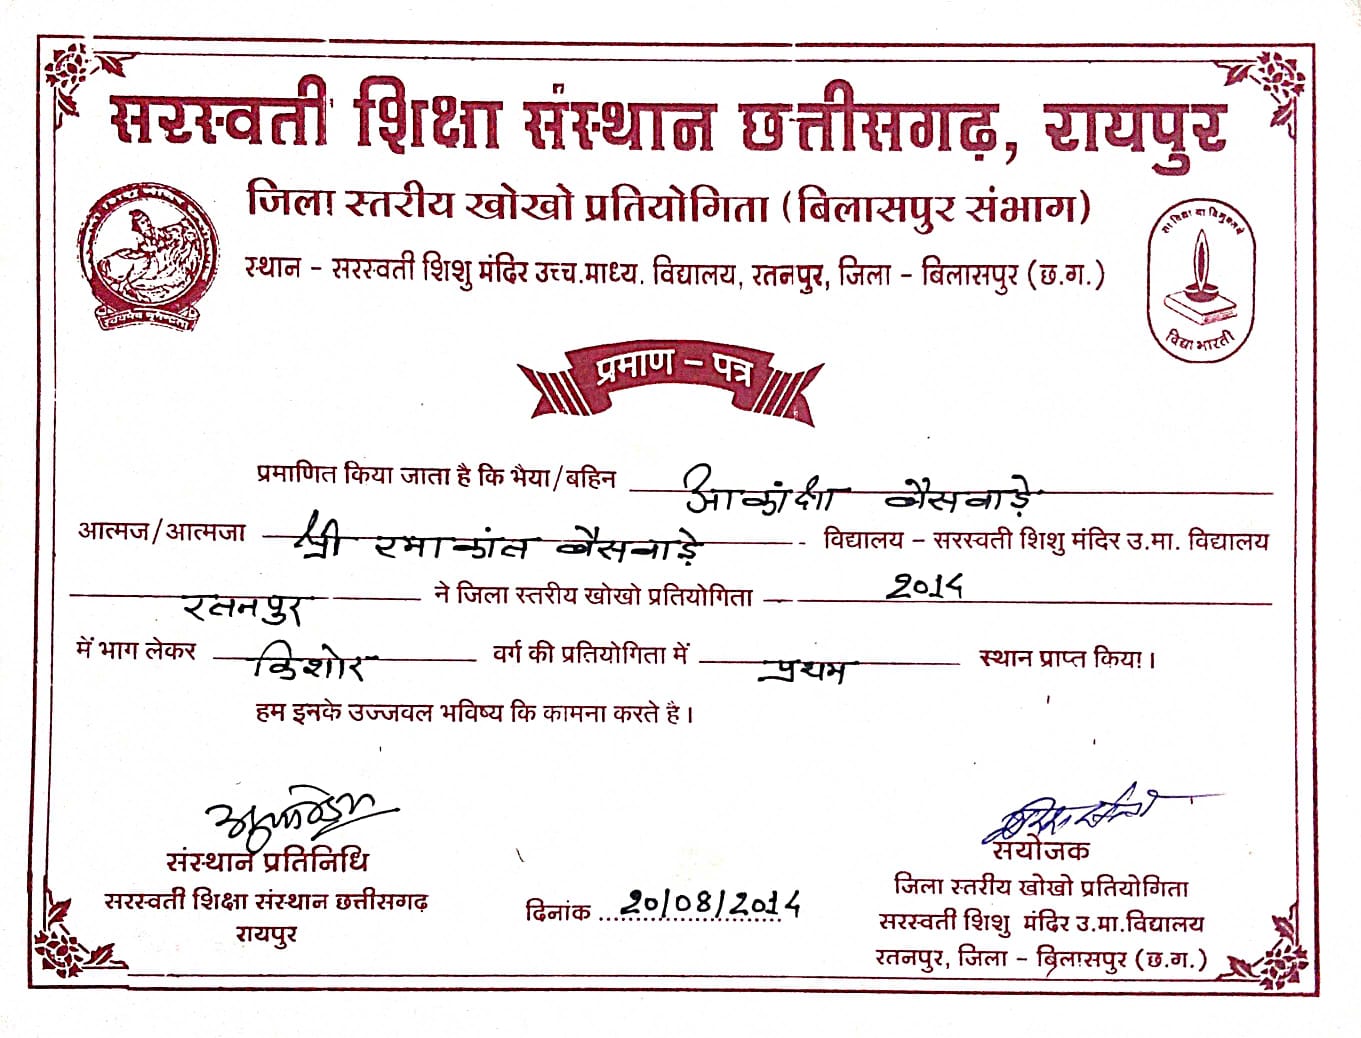 सरस्वती शिक्षा संस्थान छत्तीसगढ़, रायपुर
जिला स्तरीय खोखो प्रतियोगिता (बिलासपुर संभाग)
स्थान - सरस्वती शिशु मंदिर उच्च.माध्य. विद्यालय, रतनपुर, जिला - बिलासपुर (छ.ग.)
सा विद्या या विमुक्तये
विद्या भारती
प्रमाण - पत्र
प्रमाणित किया जाता है कि भैया/बहिन आकांक्षा बैसवाड़े
आत्मज/आत्मजा श्री रमाकांत बैसवाड़े विद्यालय - सरस्वती शिशु मंदिर उ.मा. विद्यालय
रतनपुर ने जिला स्तरीय खोखो प्रतियोगिता 2014
में भाग लेकर किशोर वर्ग की प्रतियोगिता में प्रथम स्थान प्राप्त किया।
हम इनके उज्जवल भविष्य कि कामना करते है।
संस्थान प्रतिनिधि
सरस्वती शिक्षा संस्थान छत्तीसगढ़
रायपुर
दिनांक 20/08/2014
संयोजक
जिला स्तरीय खोखो प्रतियोगिता
सरस्वती शिशु मंदिर उ.मा.विद्यालय
रतनपुर, जिला - बिलासपुर (छ.ग.)